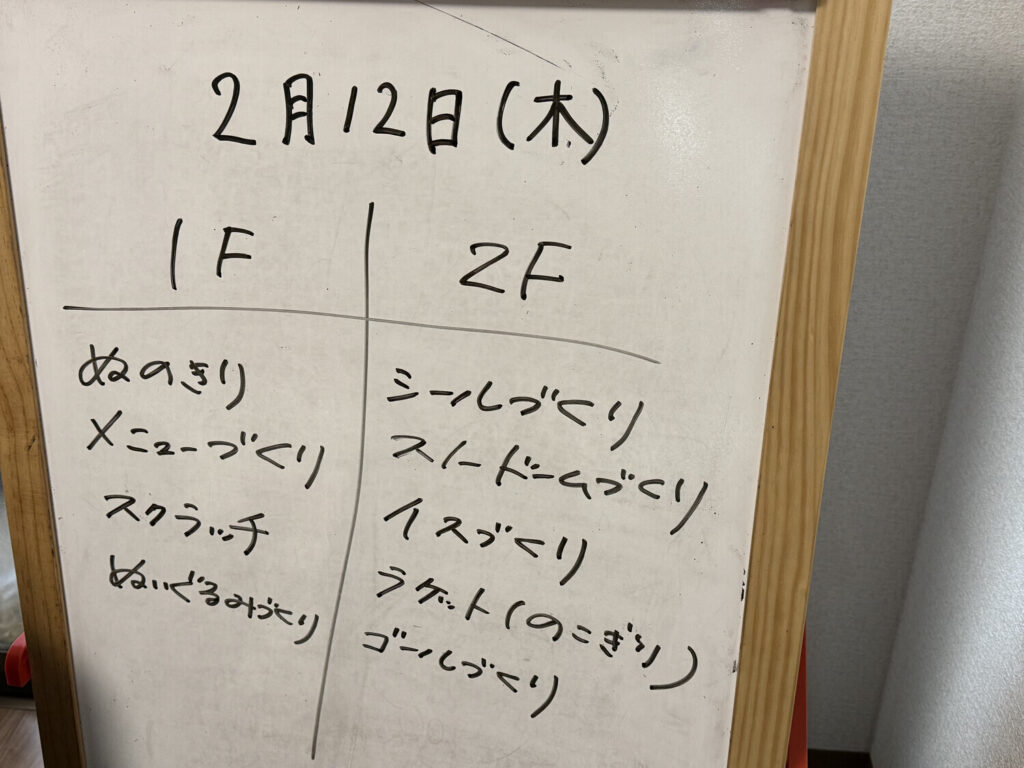 2月12日(木)
1F
2F
ぬのきり
メニューづくり
スクラッチ
ぬいぐるみづくり
シールづくり
スノードームづくり
イスづくり
ラケット(のこぎり)
ゴールづくり